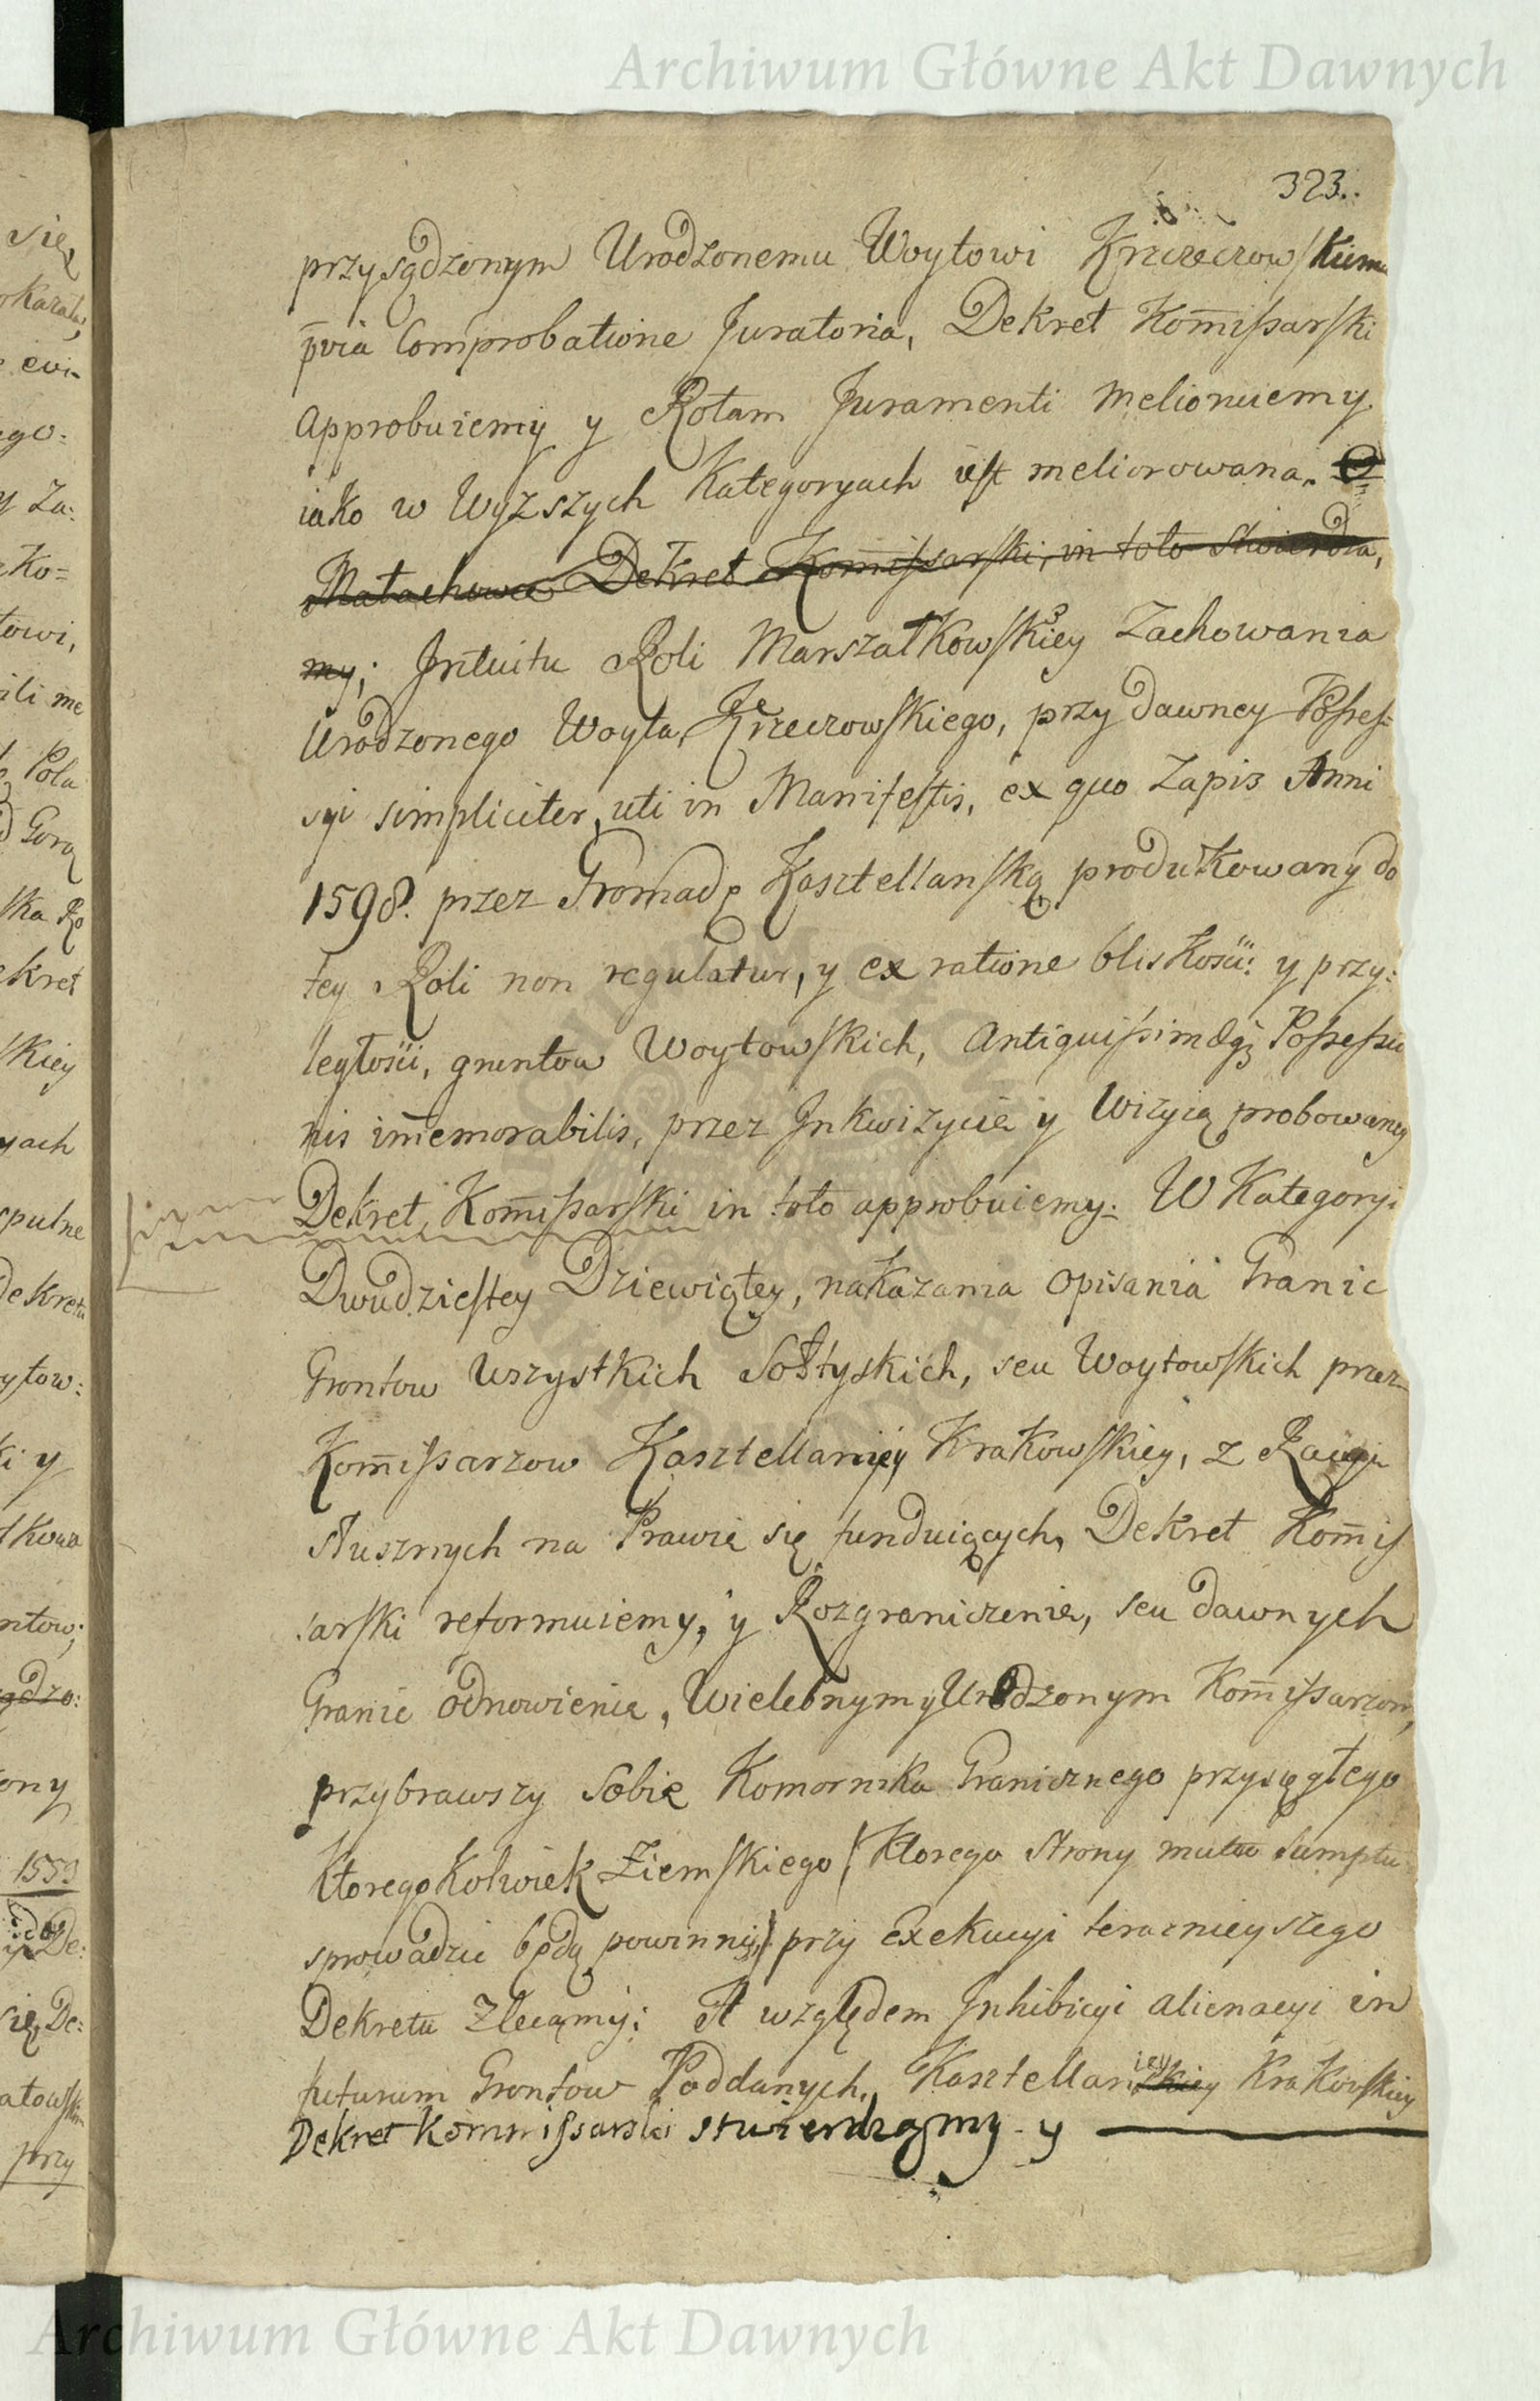 Archiwum Główne Akt Dawnych
323.
przysądzonym Urodzonemu Woytowi Krzeczowskiemu
pvia Comprobatione Juratoria, Dekret Kom̄issarski
approbuiemy y Rotam Juramenti meliouiemy
iako w Wyższych Kategoryach iest meliorowana. O
Małachowce Dekret Kom̄issarski, in toto stwierdza,
my; Intuitu Roli Marszałkowskiey Zachowania
Urodzonego Woyta Krzeczowskiego, przy dawney Posses:
syi simpliciter, uti in Manifestis, ex quo Zapis Anni
1598. przez Gromadę Kasztellanską produkowany do
tey Roli non regulatur, y ex ratione bliskości y przy:
ległości, gruntow Woytowskich, Antiquissimaeq; Possessio
nis im̄emorabilis, przez Inkwizycie y Wizyią probowaney
Dekret Kom̄issarski in toto approbuiemy. W Kategoryi
Dwudziestey Dziewiątey, nakazania opisania Granic
Grontow Wszystkich Sołtyskich, seu Woytowskich przez
Kom̄issarzow Kasztellaniey Krakowskiey, z Racyi
słusznych na Prawie się funduiących, Dekret Kom̄is
sarski reformuiemy, y Rozgraniczenie, seu dawnych
Granic odnowienie, Wielebnym y Urodzonym Kom̄issarzom,
przybrawszy Sobie Komornika Granicznego przysięgłego
ktoregokolwiek Ziemskiego (ktorego strony mutuo sumptu
sprowadzic będą powinni,) przy Exekucyi teraznieyszego
Dekretu Zlecamy; A względem Inhibicyi alienacyi in
futurum Grontow Poddanych, Kasztellaniey Krakowskiey
Dekret Kommissarski stwierdzamy y
Archiwum Główne Akt Dawnych